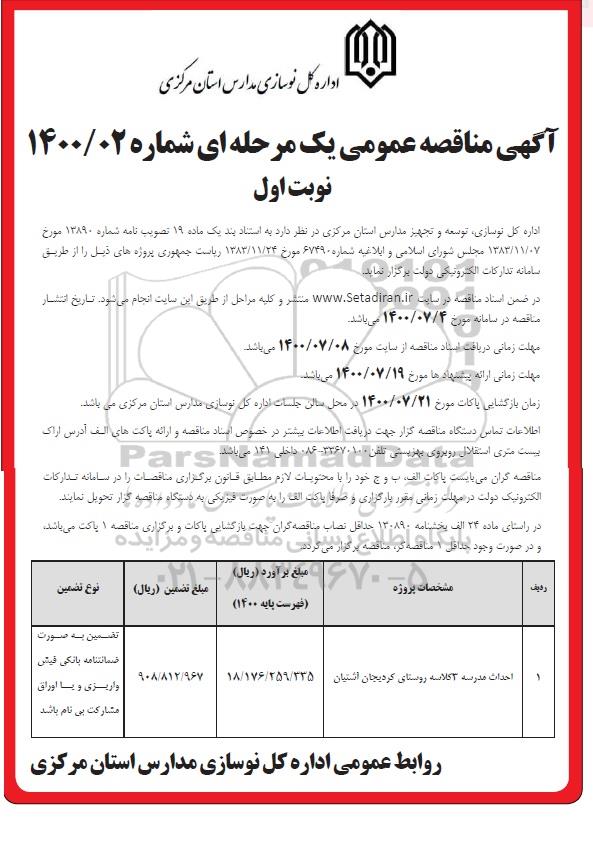 اداره کل نوسازی مدارس استان مرکزی
آگهی مناقصه عمومی یک مرحله ای شماره ۱۴۰۰/۰۲
نوبت اول
اداره کل نوسازی، توسعه و تجهیز مدارس استان مرکزی در نظر دارد به استناد بند یک ماده ۱۹ تصویب نامه شماره ۱۳۸۹۰ مورخ
۱۳۸۳/۱۱/۰۷ مجلس شورای اسلامی و ابلاغیه شماره ۶۷۴۹۰ مورخ ۱۳۸۳/۱۱/۲۴ ریاست جمهوری پروژه های ذیل را از طریق
سامانه تدارکات الکترونیکی دولت برگزار نماید.
در ضمن اسناد مناقصه در سایت www.Setadiran.ir منتشر و کلیه مراحل از طریق این سایت انجام می‌شود. تاریخ انتشار
مناقصه در سامانه مورخ ۱۴۰۰/۰۷/۴ می‌باشد.
مهلت زمانی دریافت اسناد مناقصه از سایت مورخ ۱۴۰۰/۰۷/۰۸ می‌باشد.
مهلت زمانی ارائه پیشنهاد ها مورخ ۱۴۰۰/۰۷/۱۹ می‌باشد.
زمان بازگشایی پاکات مورخ ۱۴۰۰/۰۷/۲۱ در محل سالن جلسات اداره کل نوسازی مدارس استان مرکزی می باشد.
اطلاعات تماس دستگاه مناقصه گزار جهت دریافت اطلاعات بیشتر در خصوص اسناد مناقصه و ارائه پاکت های الف آدرس اراک
بیست متری استقلال روبروی بهزیستی تلفن ۳۳۶۷۰۱۰۰-۰۸۶ داخلی ۱۴۱ می‌باشد.
مناقصه گران می‌بایست پاکات الف، ب و ج خود را با محتویات لازم مطابق قانون برگزاری مناقصات را در سامانه تدارکات
الکترونیک دولت در مهلت زمانی مقرر بارگزاری و صرفا پاکت الف را به صورت فیزیکی به دستگاه مناقصه گزار تحویل نمایند.
در راستای ماده ۲۴ الف بخشنامه ۱۳۰۸۹۰ حداقل نصاب مناقصه‌گران جهت بازگشایی پاکات و برگزاری مناقصه ۱ پاکت می‌باشد،
و در صورت وجود حداقل ۱ مناقصه‌گر، مناقصه برگزار می‌گردد.
ردیف مشخصات پروژه مبلغ برآورد (ریال) (فهرست پایه ۱۴۰۰) مبلغ تضمین (ریال) نوع تضمین
۱ احداث مدرسه ۳کلاسه روستای کردیجان آشتیان ۱۸/۱۷۶/۲۵۹/۳۳۵ ۹۰۸/۸۱۲/۹۶۷ تضمین به صورت
ضمانتنامه بانکی فیش
واریزی و یا اوراق
مشارکت بی نام باشد
روابط عمومی اداره کل نوسازی مدارس استان مرکزی
ParsNamadData
پایگاه اطلاع رسانی مناقصه و مزایده
۰۲۱-۸۸۳۴۹۶۷۰-۵